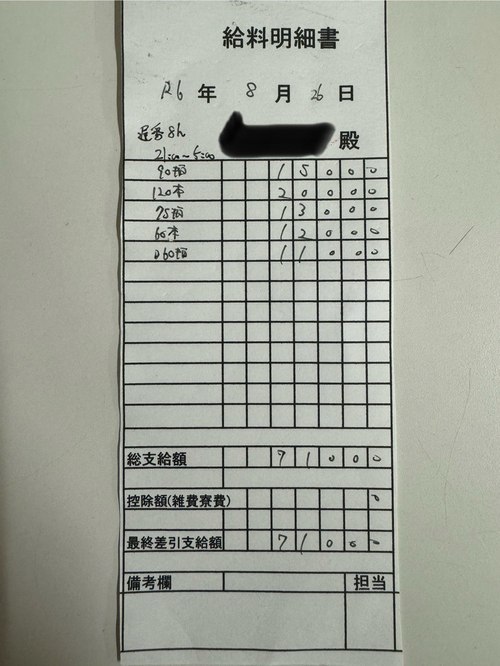 給料明細書
R6 年 8 月 26 日
遅番 8h
殿
21:00~5:00
90指 15000
120本 20000
75指 13000
60本 12000
060指 11000
総支給額 71000
控除額(雑費寮費) 0
最終差引支給額 71000
備考欄 担当